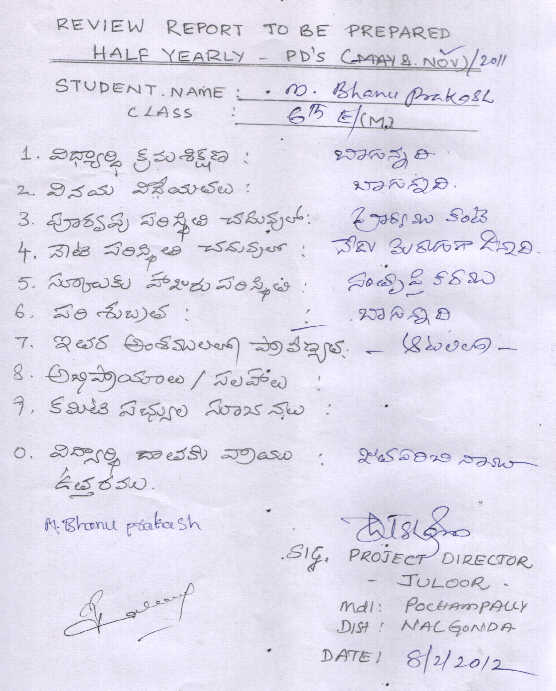 REVIEW REPORT TO BE PREPARED
HALF YEARLY - PD'S (MAY & NOV)/2011
STUDENT.NAME : M. Bhanu prakash
CLASS : 6th E/(M.)
1. విద్యార్థి క్రమశిక్షణ : బాగున్నది
2. వినయ విధేయతలు : బాగున్నది.
3. పూర్వపు పరిస్థితి చదువులో: పూర్వము కంటే
4. నేటి పరిస్థితి చదువులో : నేడు మెరుగుగా
5. స్కూలుకు హాజరు పరిస్థితి : సంతృప్తి కరము
6. పరి శుభ్రత : బాగున్నది
7. ఇతర అంశములలో ప్రావీణ్యత - ఆటలలో -
8. అభిప్రాయాలు / సలహాలు :
9. కమిటి సభ్యుల సూచనలు :
0. విద్యార్థి దాతకు వ్రాయు :
ఉత్తరము.
M. Bhanu prakash
SIG, PROJECT DIRECTOR
- JULOOR.
Mdl: POCHAMPALLY
DIST: NALGONDA
DATE: 8/2/2012